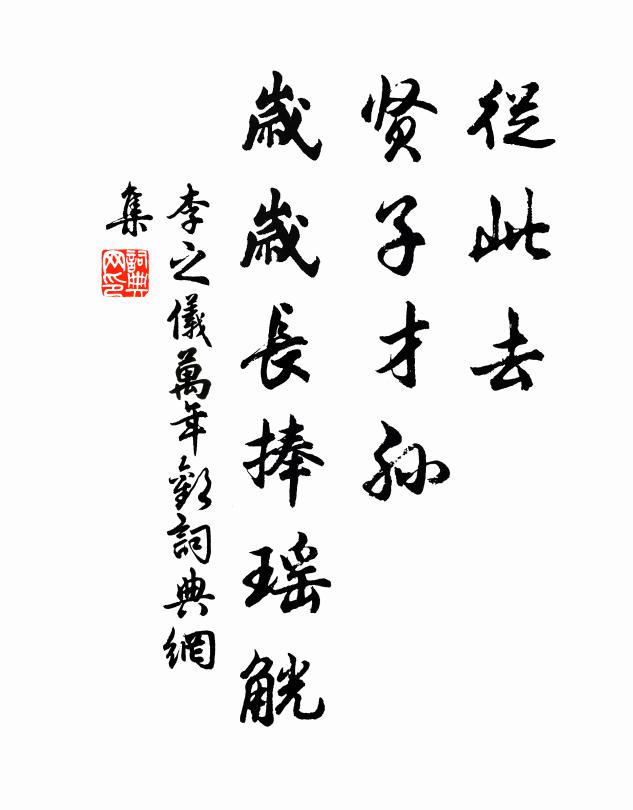 從此去
贤子才孙
歲歲長捧瑶觥
李之儀萬年歡詞典網
集
詞典
网印